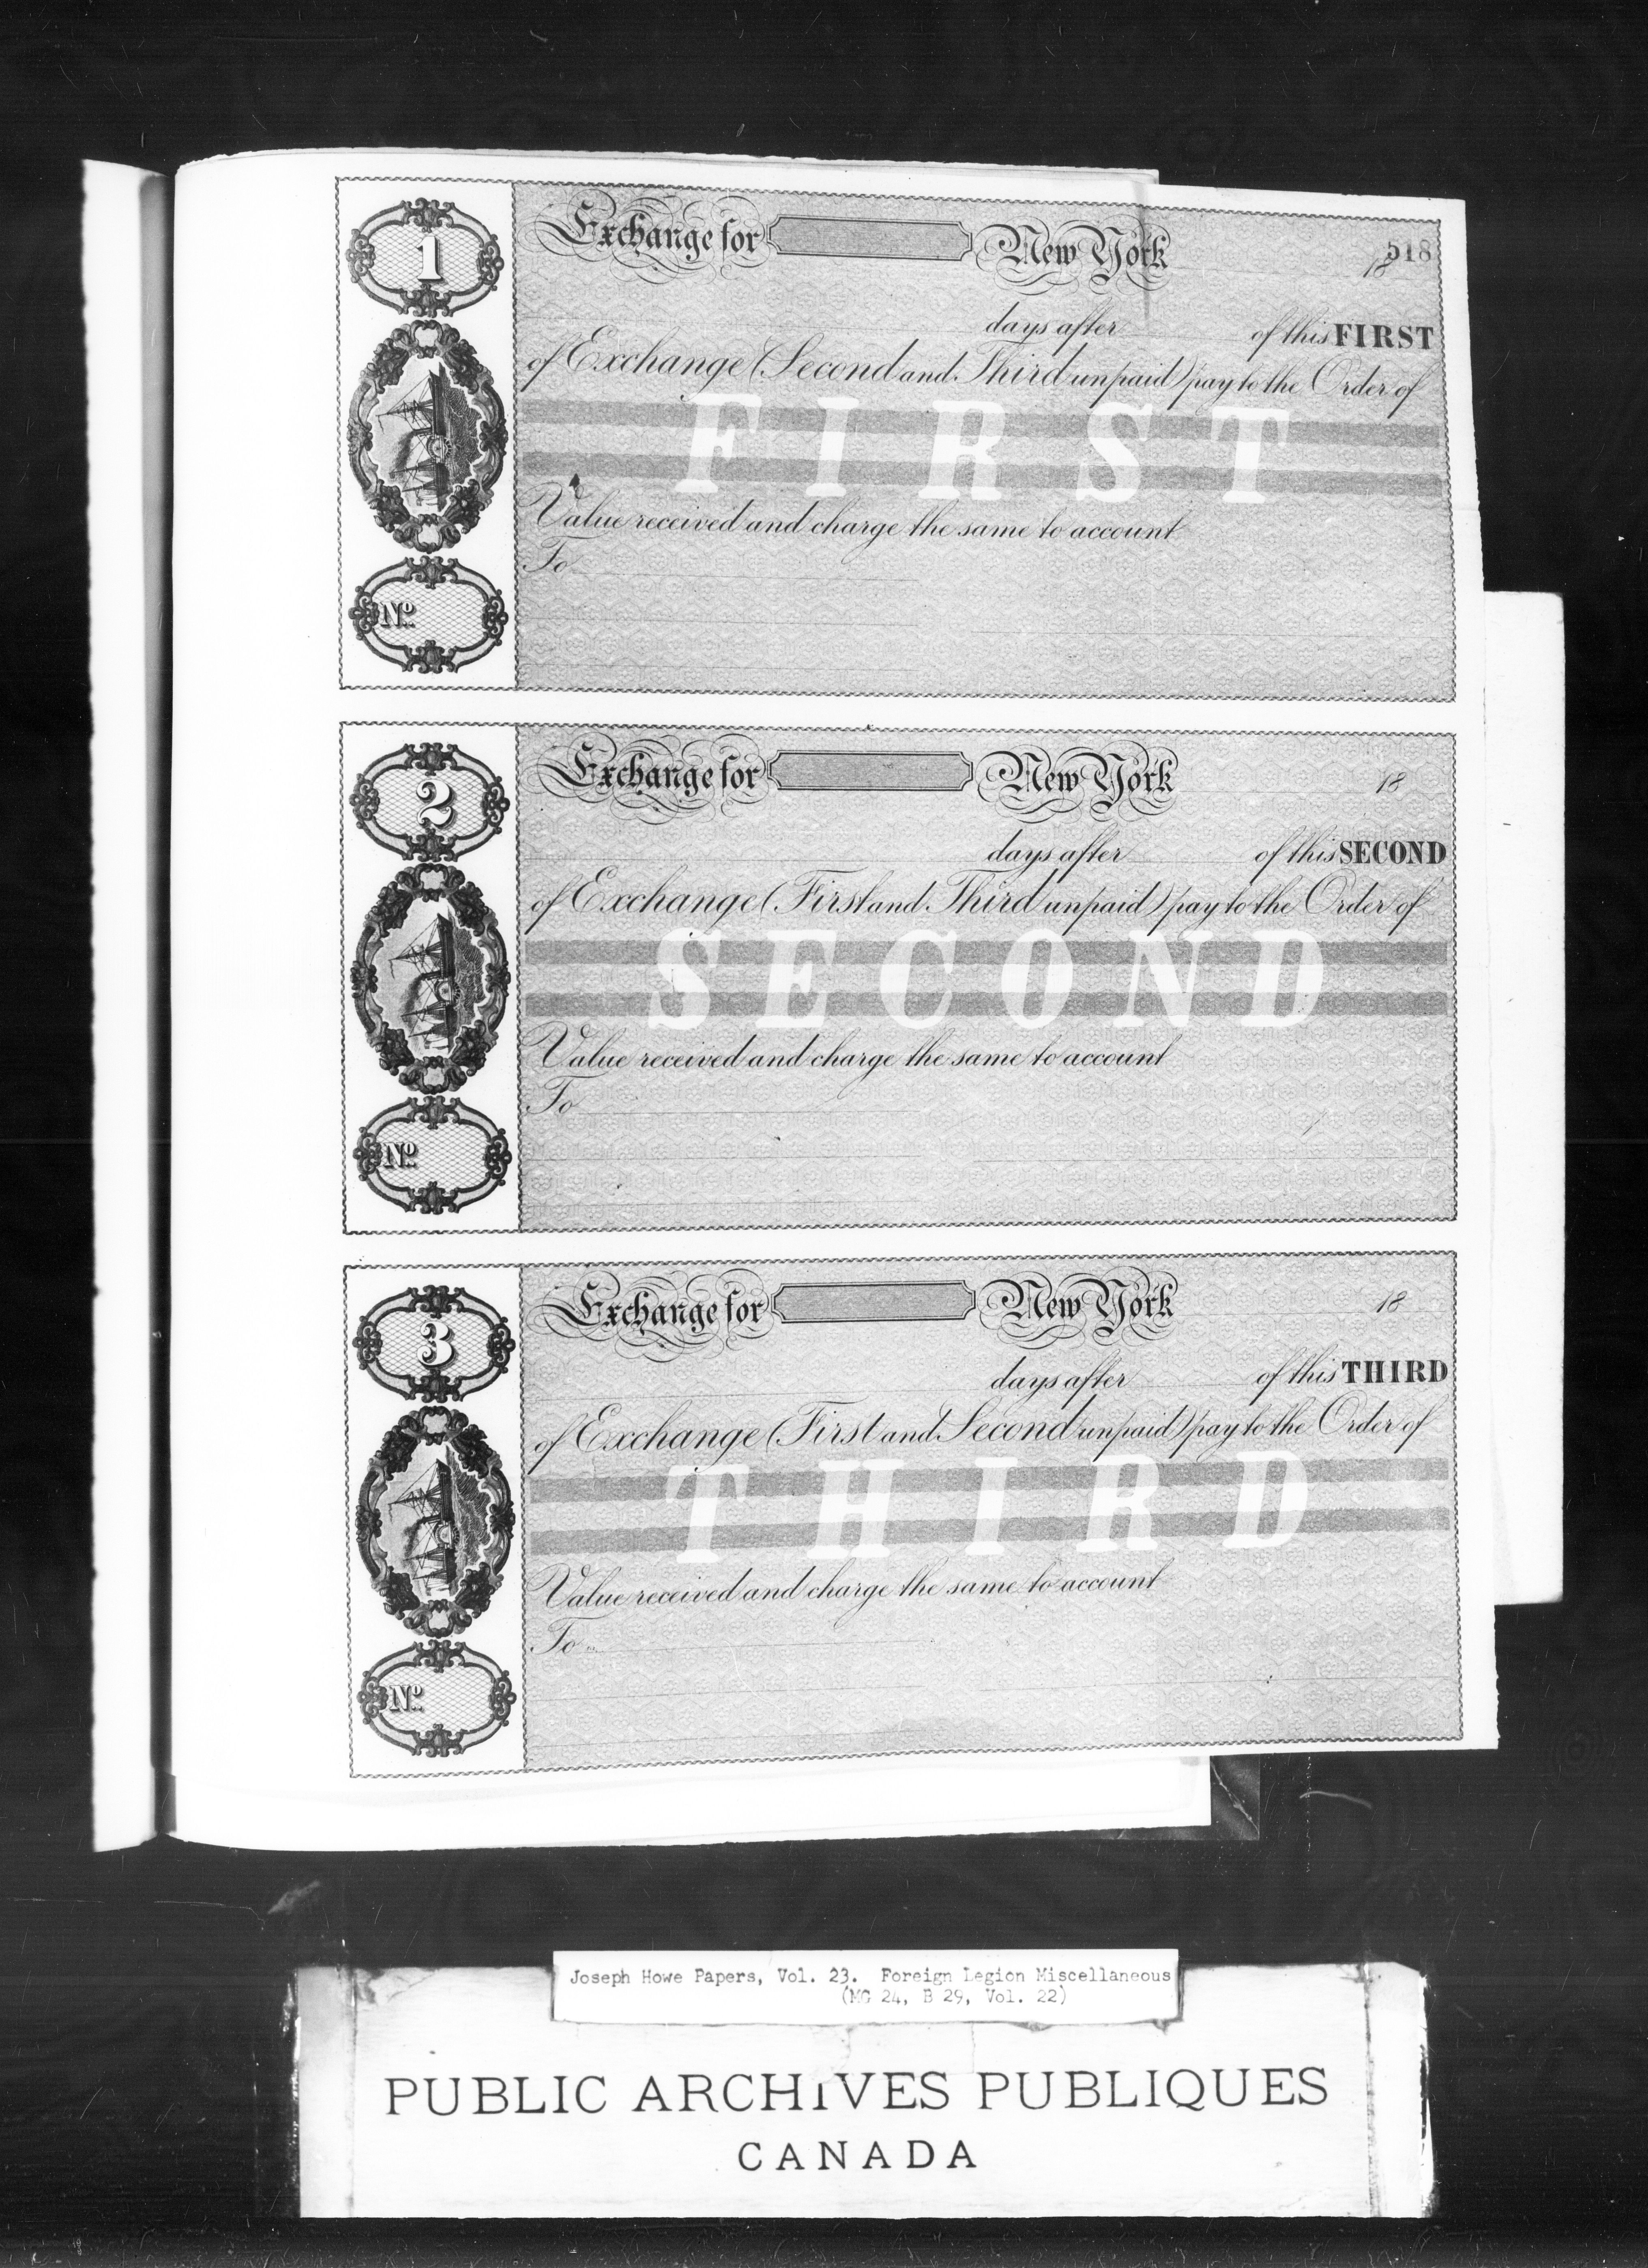 1
Exchange for New York 18
518
days after of this FIRST
of Exchange (Second and Third unpaid) pay to the Order of
FIRST
Value received and charge the same to account
To
No.
2
Exchange for New York 18
days after of this SECOND
of Exchange (First and Third unpaid) pay to the Order of
SECOND
Value received and charge the same to account
To
No.
3
Exchange for New York 18
days after of this THIRD
of Exchange (First and Second unpaid) pay to the Order of
THIRD
Value received and charge the same to account
To
No.
Joseph Howe Papers, Vol. 23. Foreign Legion Miscellaneous
(MG 24, B 29, Vol. 22)
PUBLIC ARCHIVES PUBLIQUES
CANADA